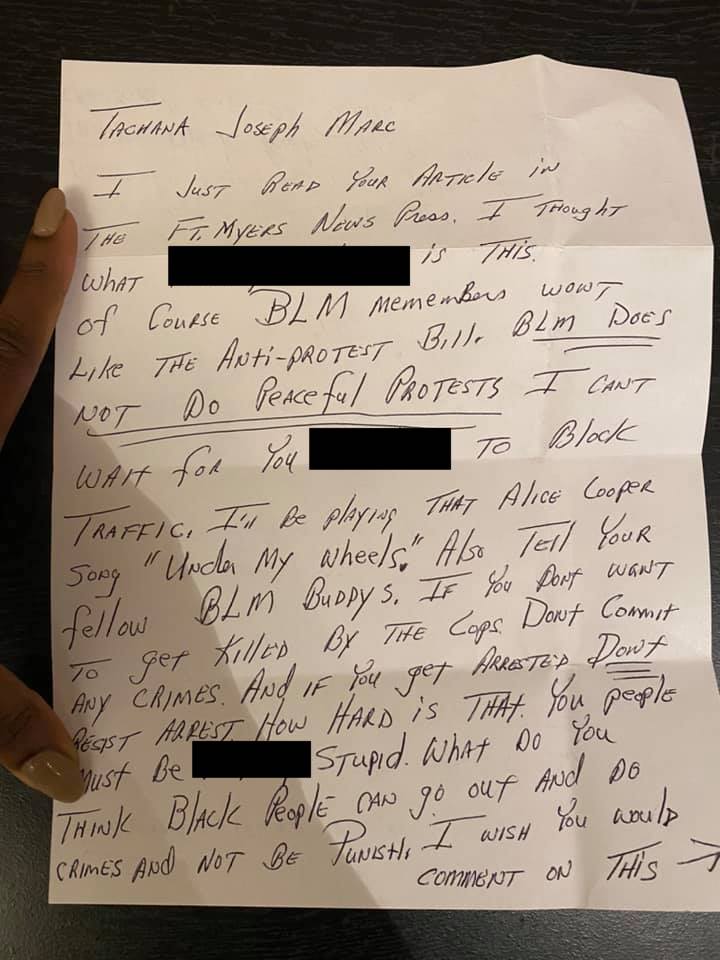 TACHANA JOSEPH MARC
I JUST READ YOUR ARTICLE IN
THE FT. MYERS NEWS PRESS. I THOUGHT
WHAT IS THIS.
OF COURSE BLM MEMEMBERS WONT
LIKE THE ANTI-PROTEST BILL. BLM DOES
NOT DO PEACEFUL PROTESTS I CANT
WAIT FOR YOU TO BLOCK
TRAFFIC. I'LL BE PLAYING THAT ALICE COOPER
SONG "UNDER MY WHEELS." ALSO TELL YOUR
FELLOW BLM BUDDYS. IF YOU DONT WANT
TO GET KILLED BY THE COPS. DONT COMMIT
ANY CRIMES. AND IF YOU GET ARRESTED DONT
RESIST ARREST. HOW HARD IS THAT. YOU PEOPLE
MUST BE STUPID. WHAT DO YOU
THINK BLACK PEOPLE CAN GO OUT AND DO
CRIMES AND NOT BE PUNISH. I WISH YOU WOULD
COMMENT ON THIS →